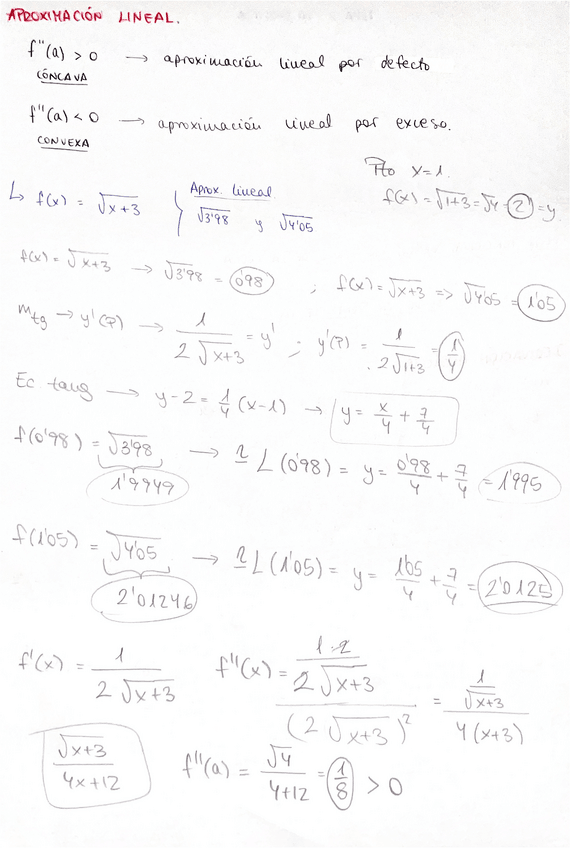 APROXIMACIÓN LINEAL.
f''(a) > 0 → aproximación lineal por defecto
CÓNCAVA
f''(a) < 0 → aproximación lineal por exceso.
CONVEXA
Pto x=1.
f(x) = √(1+3) = √4 = 2 = y
↳ f(x) = √(x+3) } Aprox. lineal
√3'98 y √4'05
f(x) = √(x+3) → √3'98 = 0'98 ; f(x) = √(x+3) => √4'05 = 1'05
mtg → y'(P) → 1/(2√(x+3)) = y' ; y'(P) = 1/(2√(1+3)) = 1/4
Ec tang → y-2 = 1/4 (x-1) → y = x/4 + 7/4
f(0'98) = √3'98 → L(0'98) = y = 0'98/4 + 7/4 = 1'995
1'9949
f(1'05) = √4'05 → L(1'05) = y = 1'05/4 + 7/4 = 2'0125
2'01246
f'(x) = 1/(2√(x+3)) f''(x) = (1·2/(2√(x+3)))/(2√(x+3))² = (1/√(x+3))/(4(x+3))
√(x+3)/(4x+12) f''(a) = √4/(4+12) = 1/8 > 0